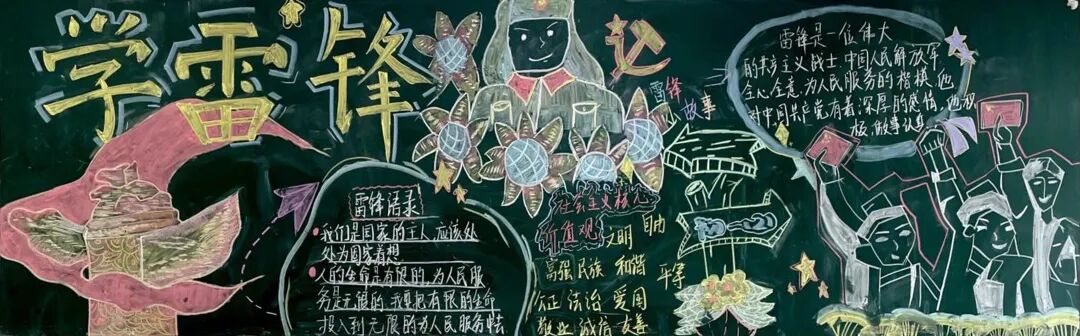 学雷锋
雷锋语录
我们是国家的主人,应该处
处为国家着想
人的生命是有限的,为人民服
务是无限的,我要把有限的生命
投入到无限的为人民服务
雷锋
故事
社会主义核心
价值观
文明 自由
富强 民族 和谐
平等
公正 法治 爱国
敬业 诚信 友善
雷锋是一位伟大
的共产主义战士 中国人民解放军
全心全意 为人民服务的楷模,他
对中国共产党有着深厚的感情,他积
极,做事认真